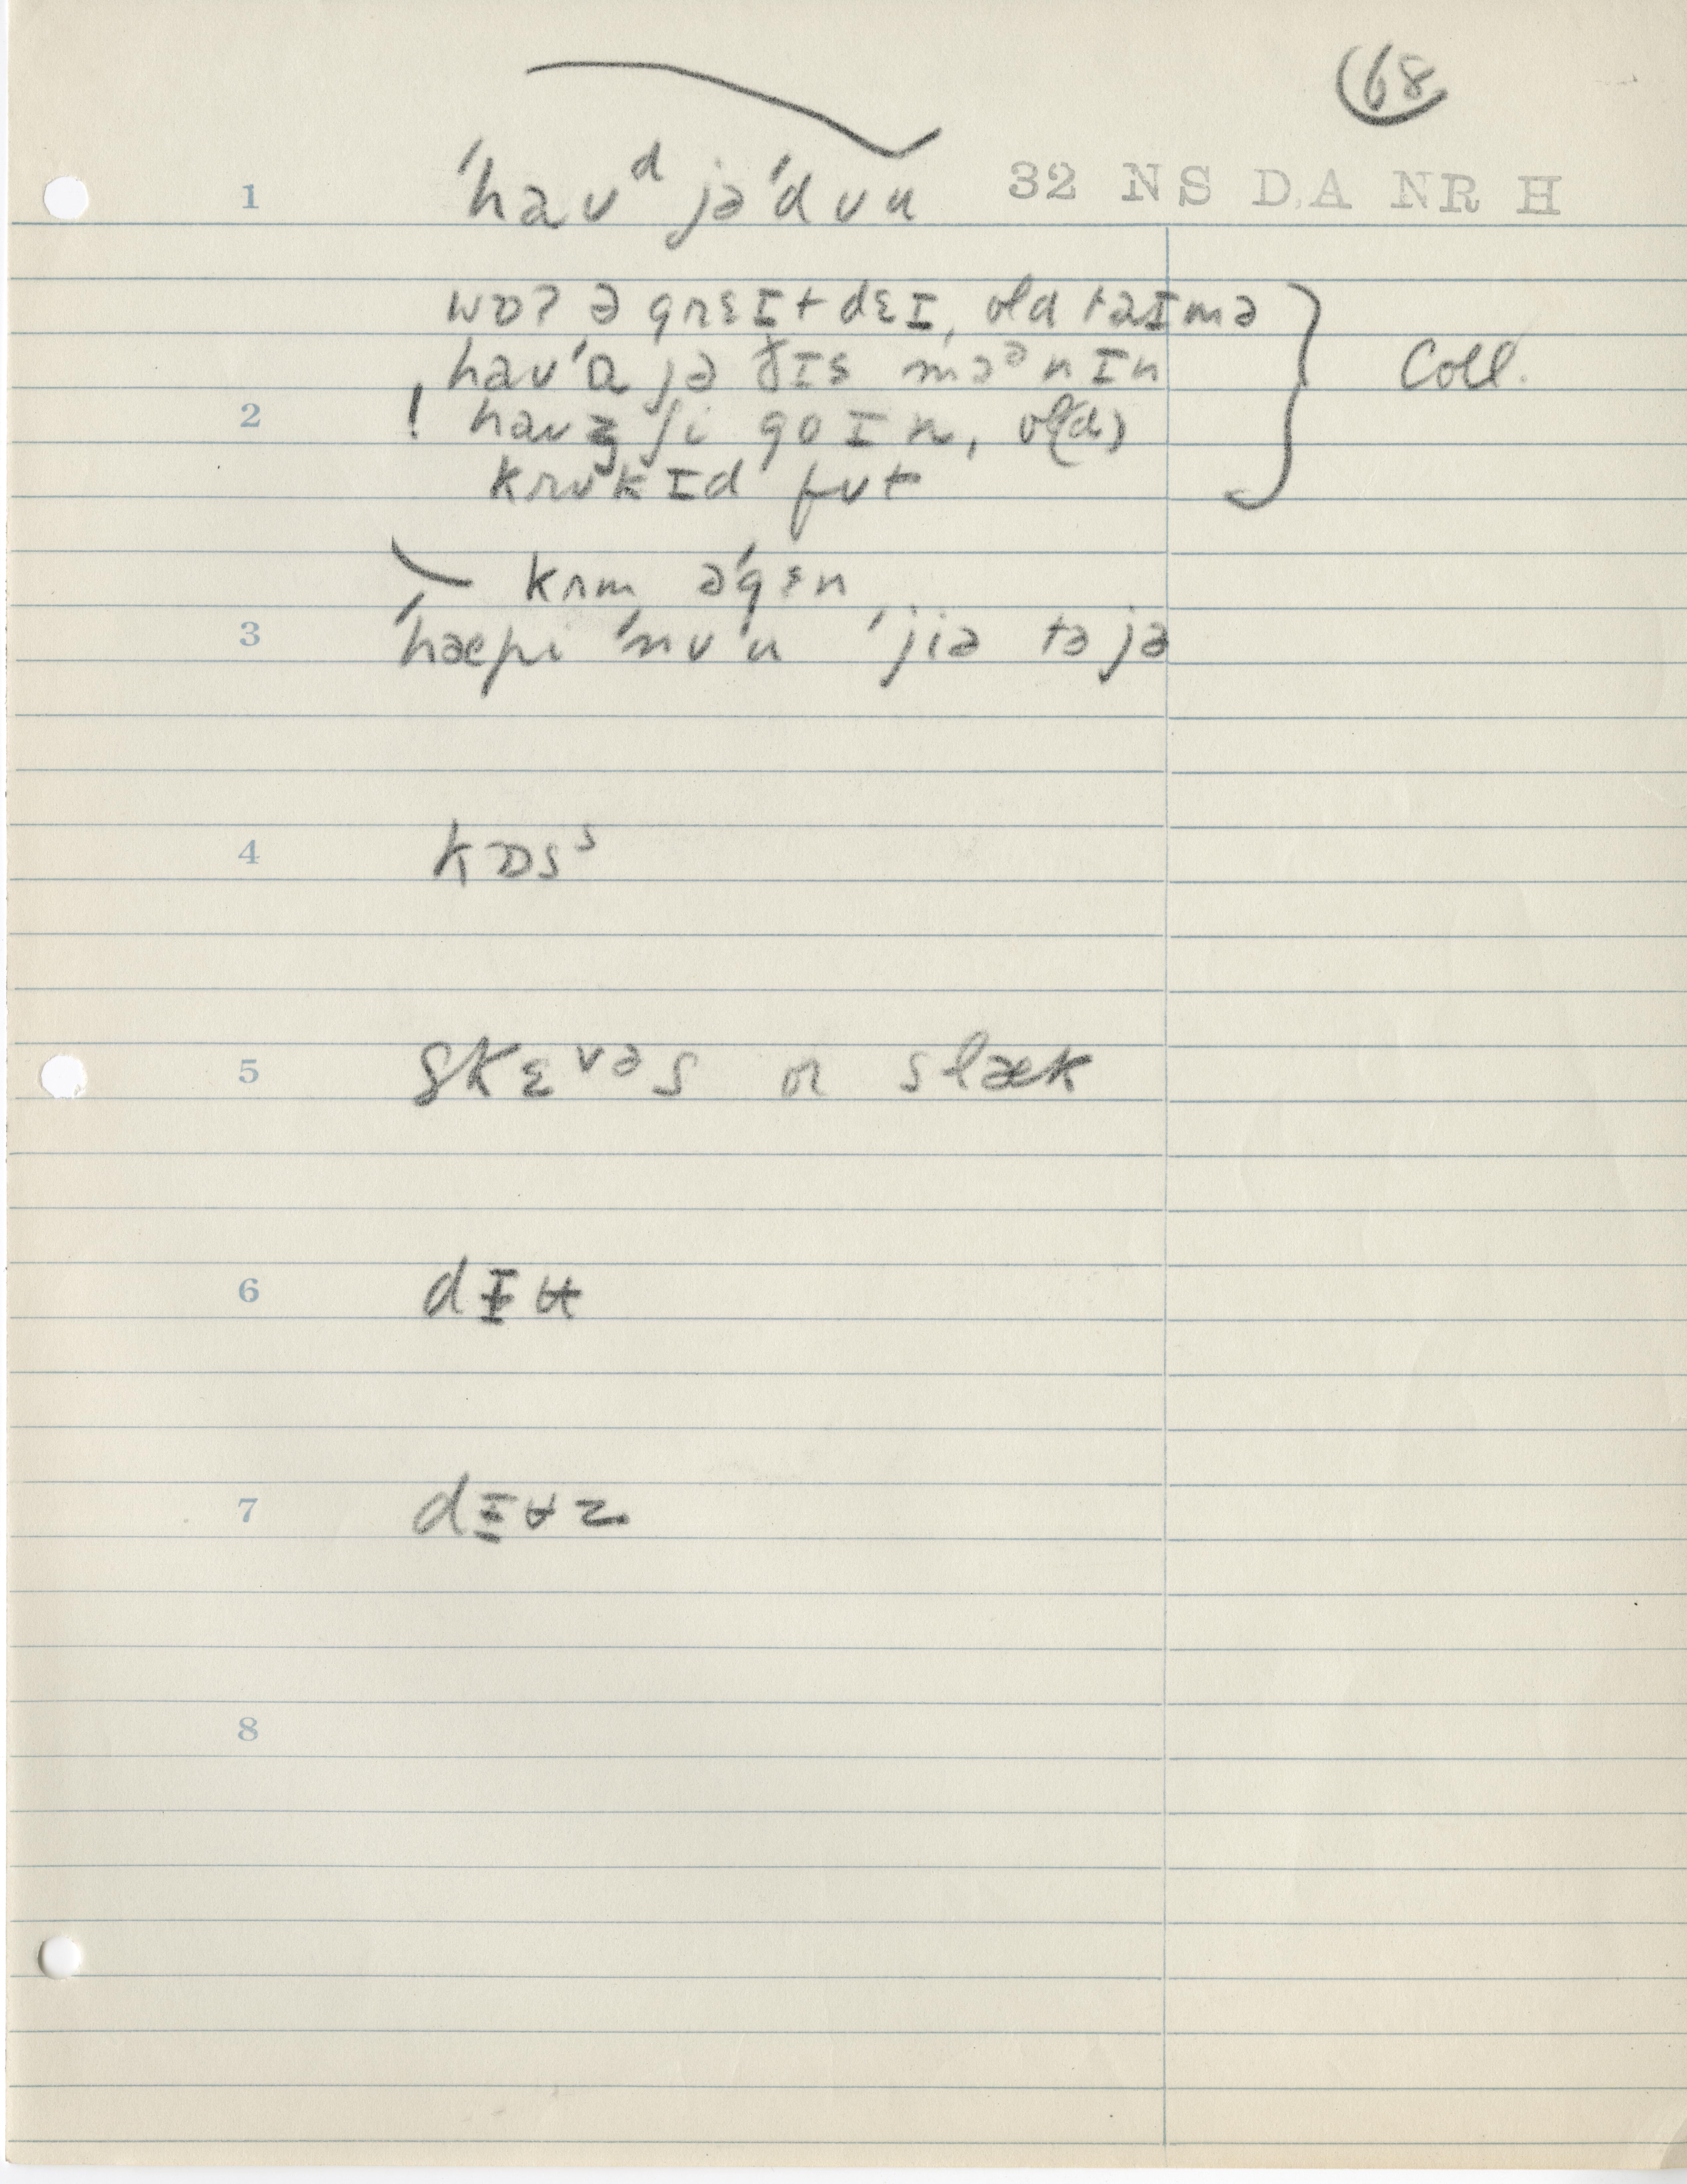 68
1 ˈhaʊᵈ jəˈdʊu 32 NS DA NR H
wɒʔ ə grɛɪt dɛɪ, old taɪmə
haʊˈɑ jə ðɪs mɔᵊnɪn
2 ! haʊʒ ʃi goɪn, ol(d)
krʊkɪd fʊt
Coll.
kʌm əˈgɛn
3 ˈhæpi ˈnʊˈu ˈjiə tə jə
4 kɒsˢ
5 skɛᵛᵊs or slæk
6 dɪʉ
7 dɪʉz
8